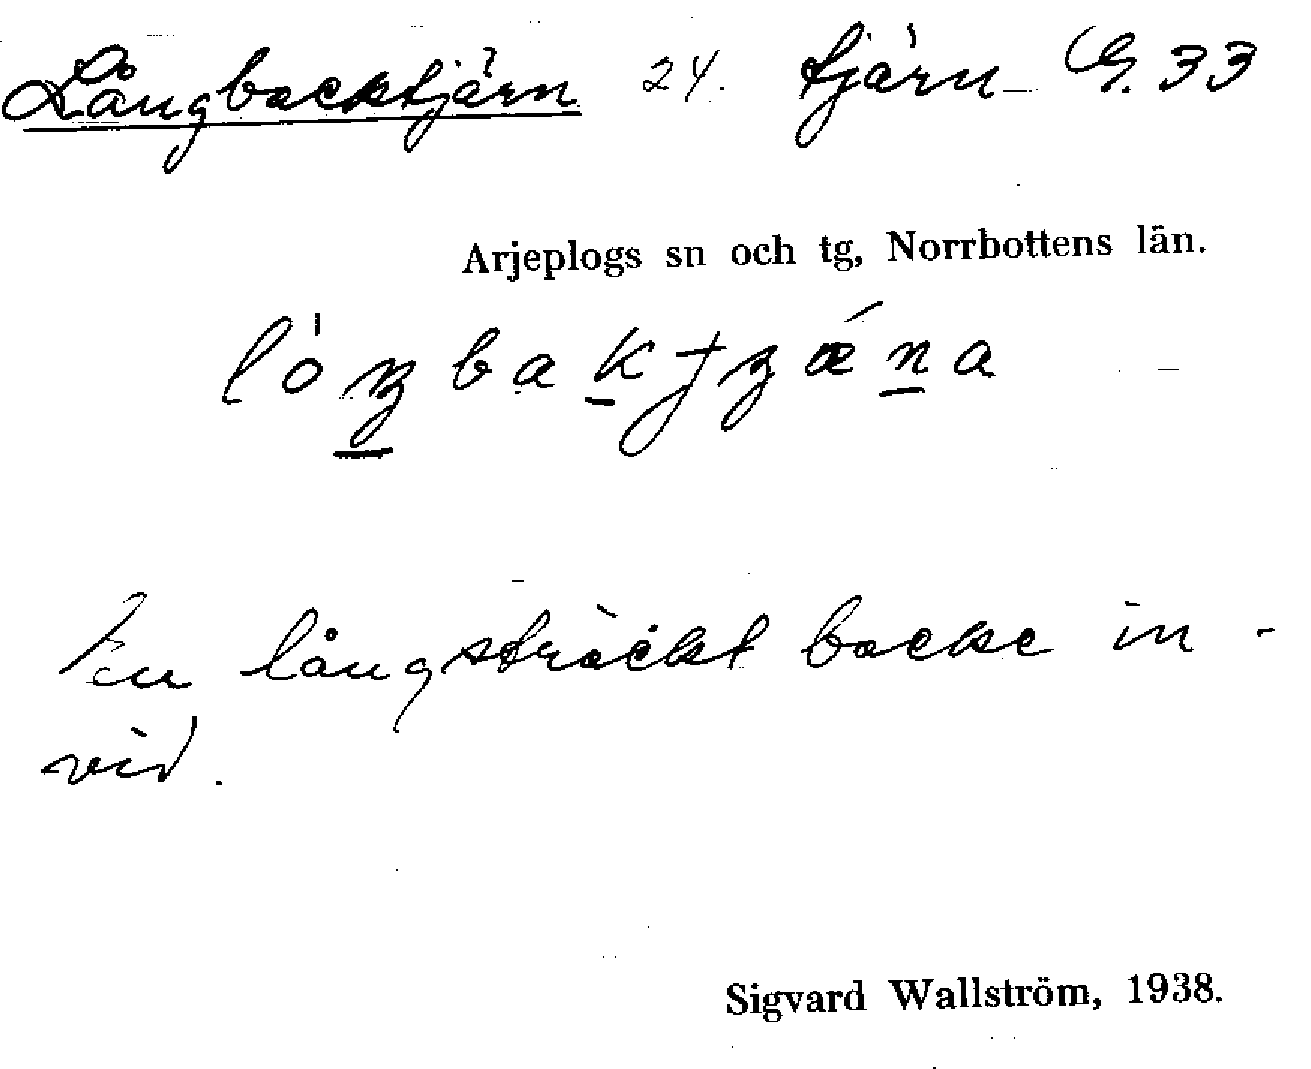 Långbacktjärn 24. tjärn G. 33
Arjeplogs sn och tg, Norrbottens län.
En långsträckt backe in-
vid.
Sigvard Wallström, 1938.